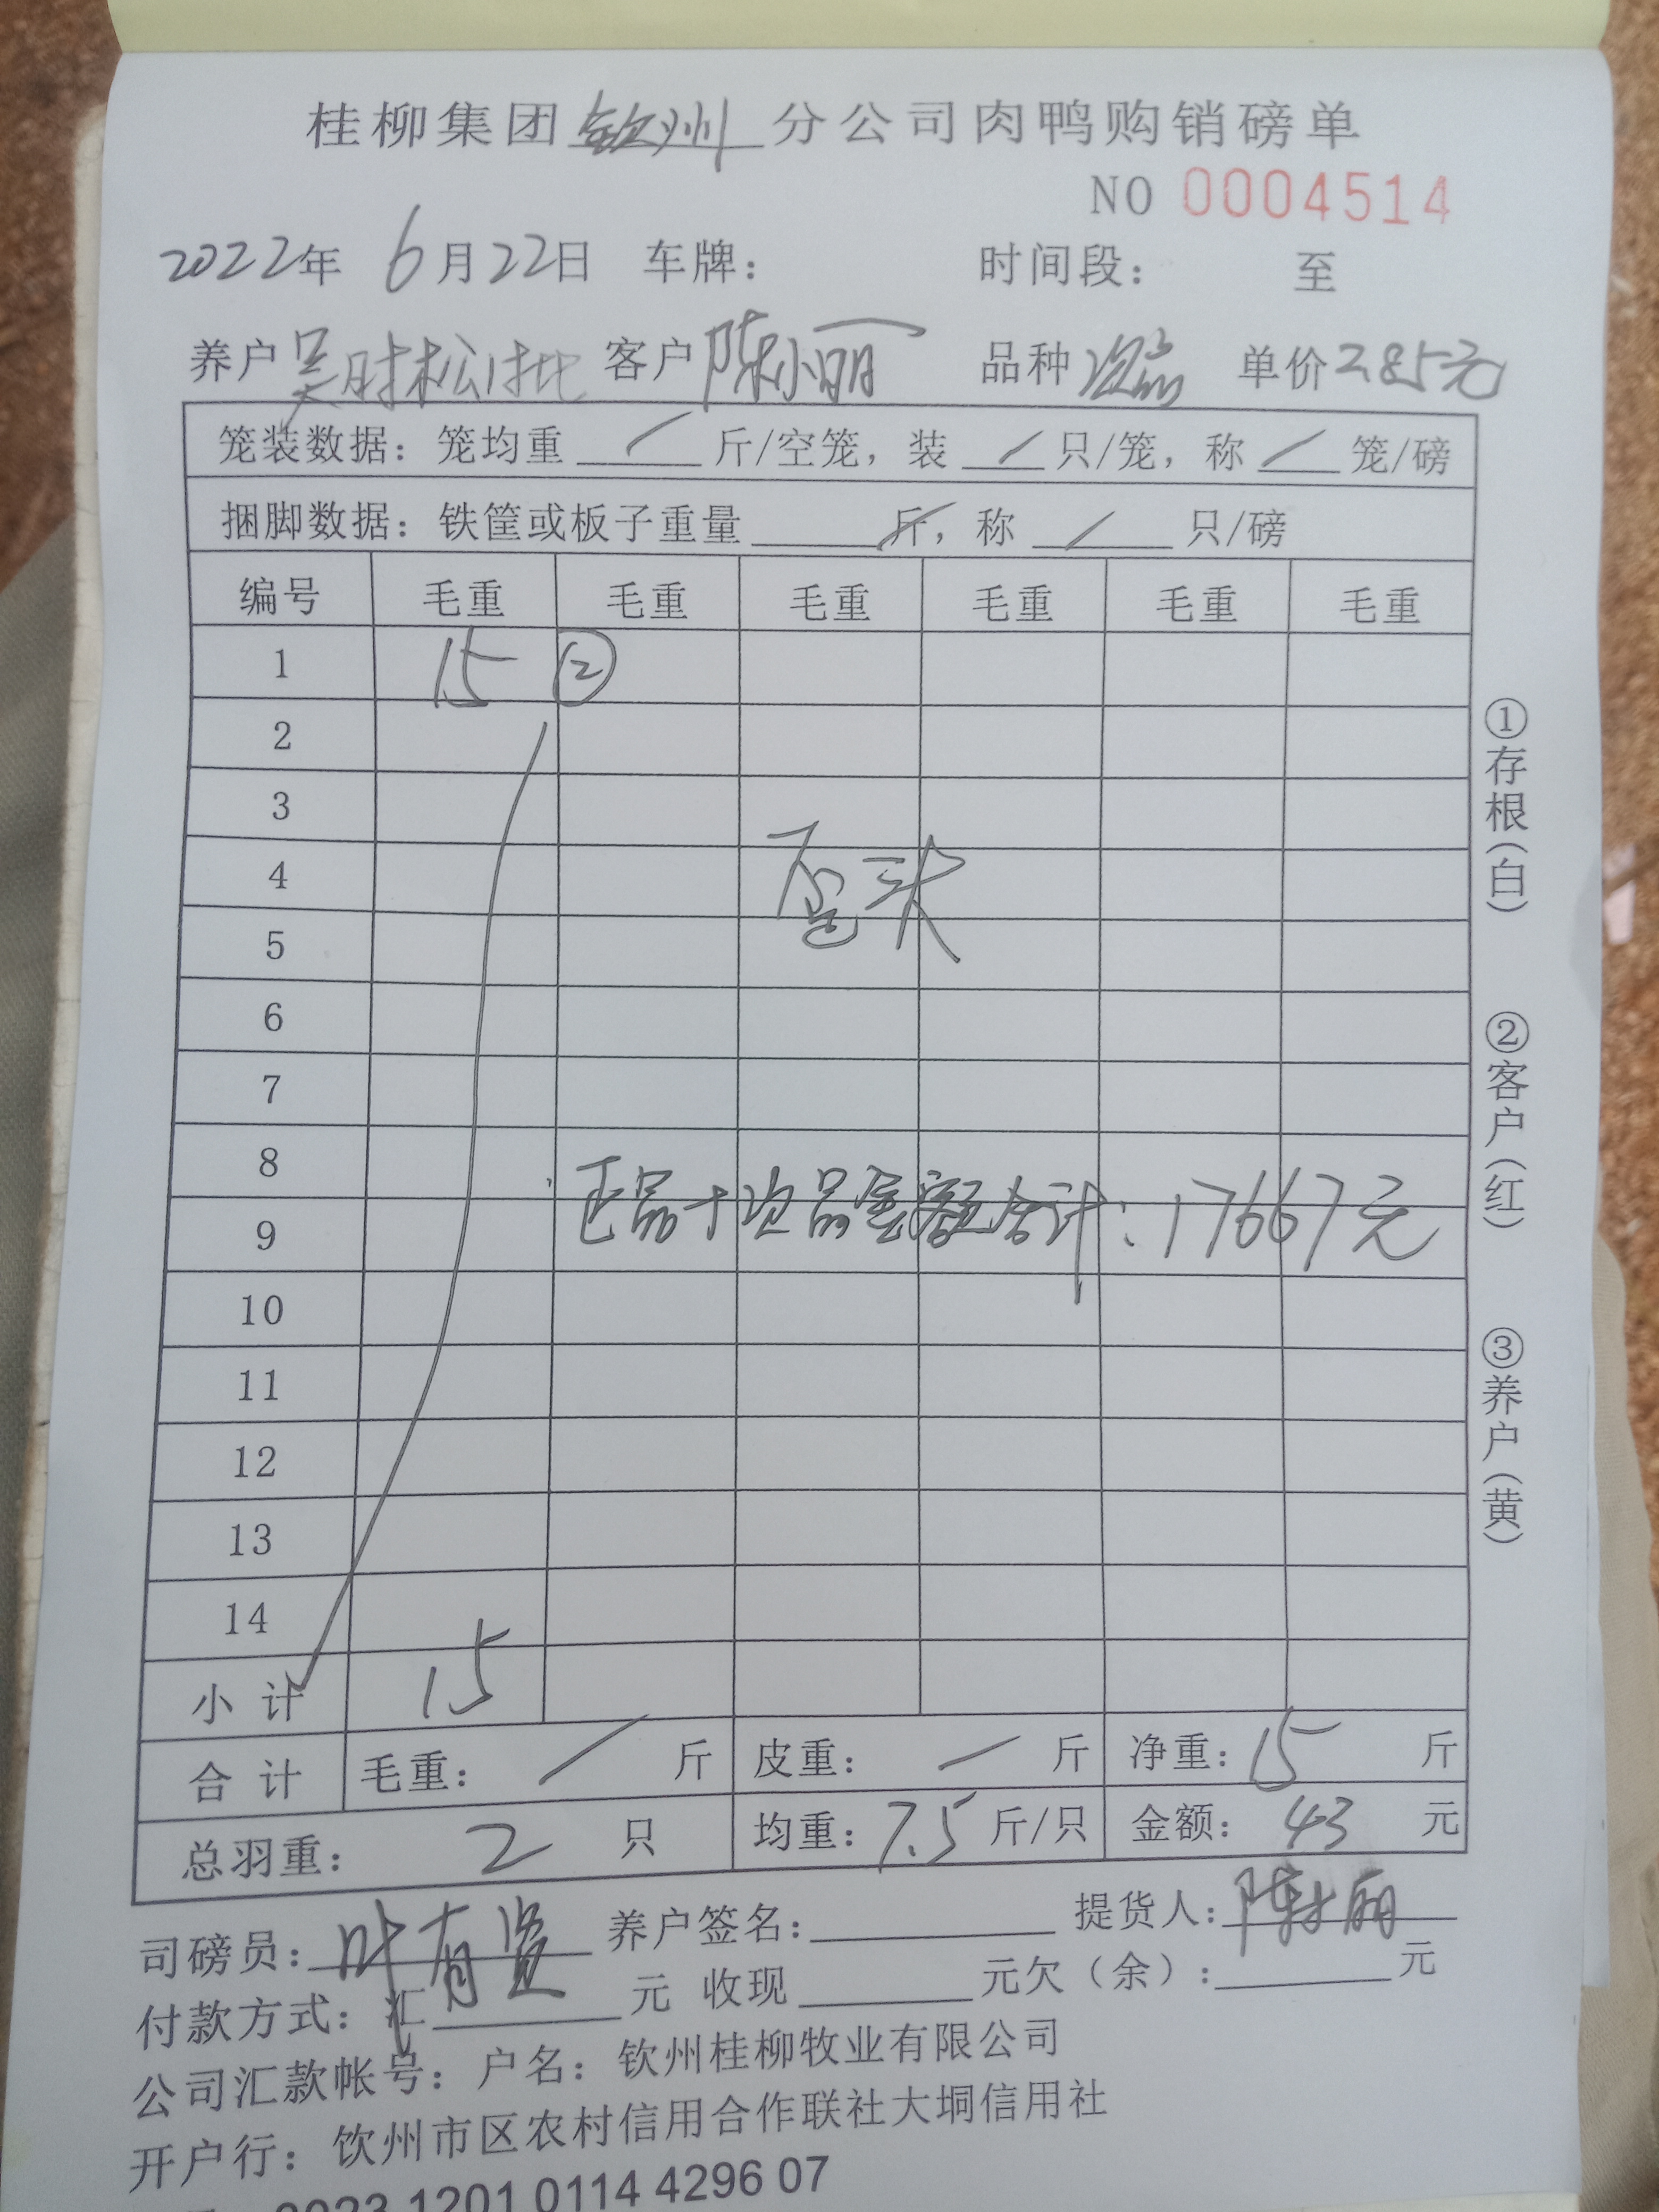 桂柳集团钦州分公司肉鸭购销磅单
NO 0004514
2022年 6月22日 车牌： 时间段： 至
养户 吴时松1批 客户 陈小丽 品种 次品 单价 2.85元
笼装数据：笼均重 / 斤/空笼，装 / 只/笼，称 / 笼/磅
捆脚数据：铁筐或板子重量 / 斤，称 / 只/磅
编号 毛重 毛重 毛重 毛重 毛重 毛重
1 15 ②
2
3
4 歪头
5
6
7
8
正品+次品金额合计：17667元
9
10
11
12
13
14
小计 15
合计 毛重： / 斤 皮重： / 斤 净重：15 斤
总羽重： 2 只 均重：7.5 斤/只 金额： 43 元
司磅员：叶有贤 养户签名： 提货人：陈小丽
付款方式：汇 元 收现 元欠（余）： 元
公司汇款帐号：户名：钦州桂柳牧业有限公司
开户行：钦州市区农村信用合作联社大垌信用社
1201 0114 4296 07
①存根（白）
②客户（红）
③养户（黄）